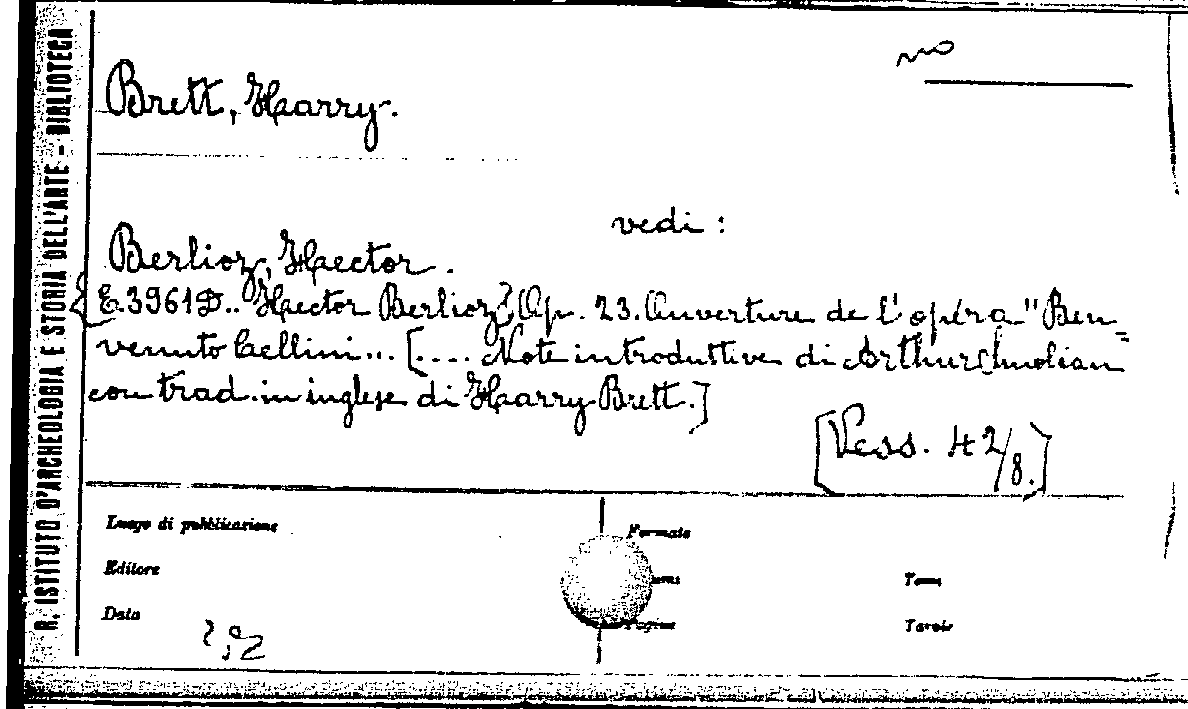 R. ISTITUTO D'ARCHEOLOGIA E STORIA DELL'ARTE - BIBLIOTECA
Brett, Harry.
vedi :
Berlioz, Hector.
E.3961D.. Hector Berlioz, Op. 23. Ouverture de l'opéra "Ben=
venuto Cellini... [.... Note introduttive di Arthur Smolian
con trad. in inglese di Harry Brett.]
[Vess. 42/8.]
Luogo di pubblicazione
Formato
Editore
Tomo
Data
Pagine
Tavole